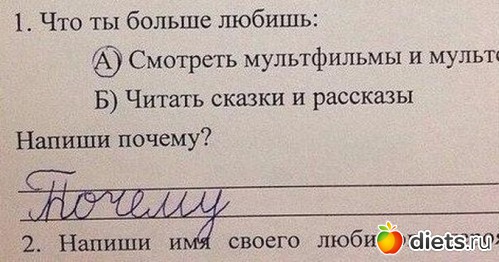 1. Что ты больше любишь:
А) Смотреть мультфильмы и
Б) Читать сказки и рассказы
Напиши почему?
Почему
2. Напиши имя своего
diets.ru